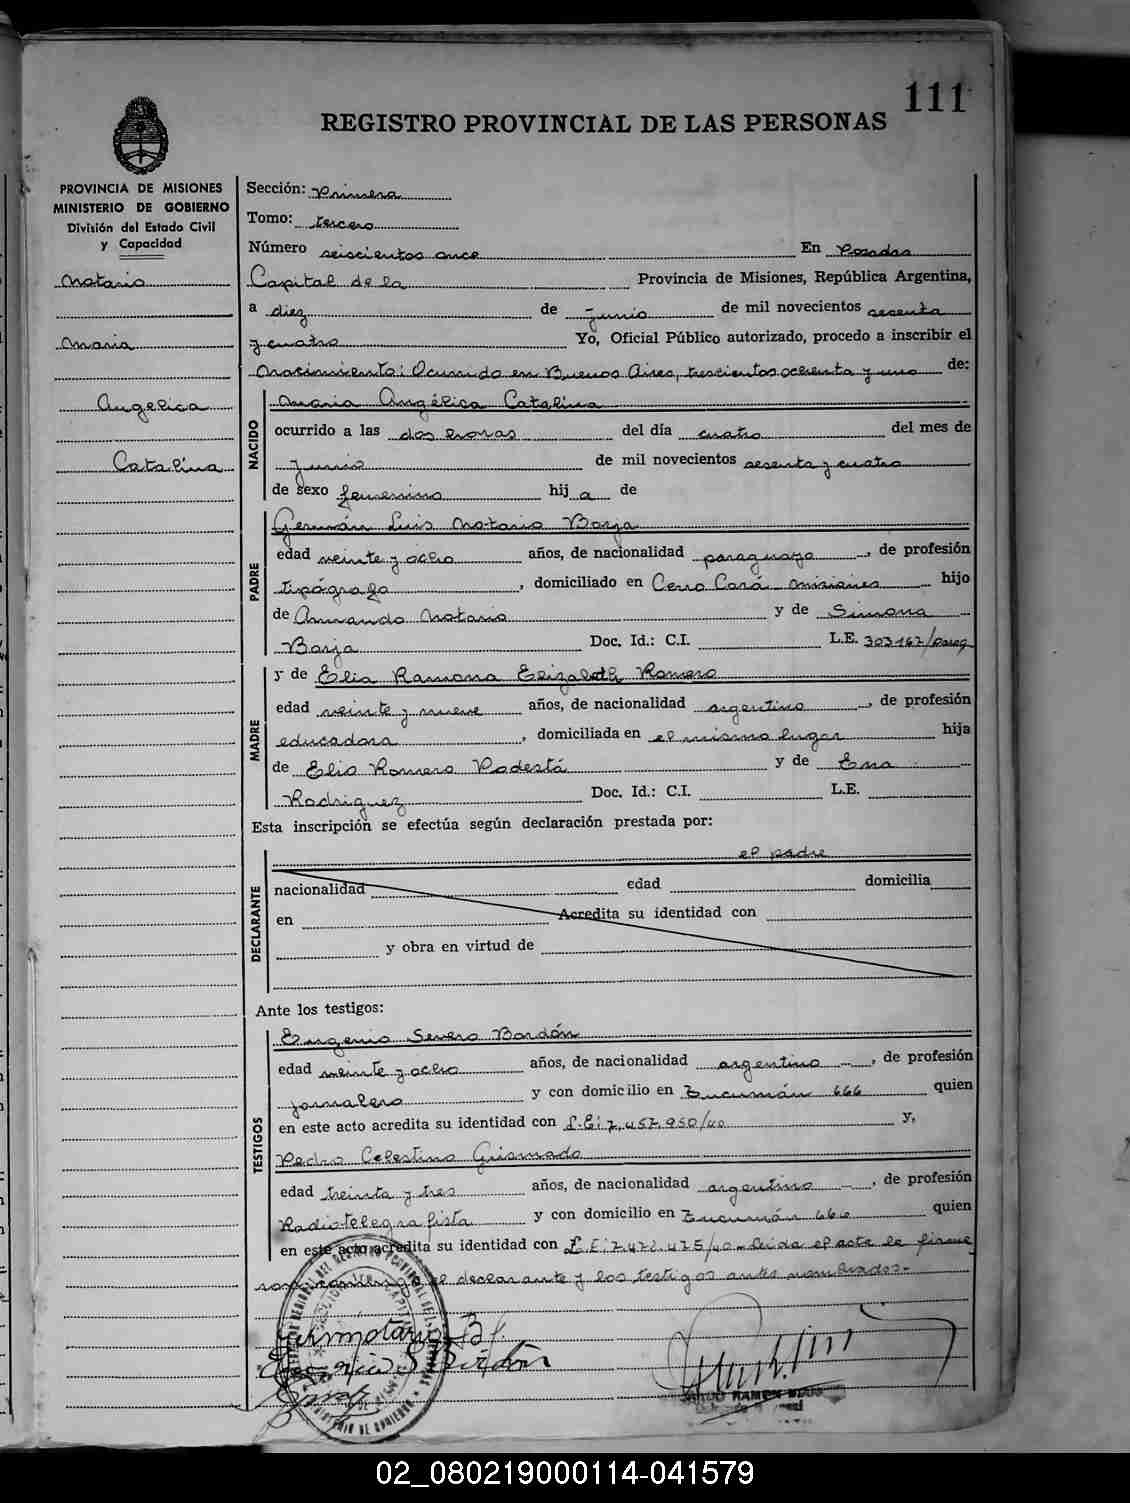 111
REGISTRO PROVINCIAL DE LAS PERSONAS
PROVINCIA DE MISIONES
MINISTERIO DE GOBIERNO
División del Estado Civil
y Capacidad
Notario
Maria
Angelica
Catalina
Sección: Primera
Tomo: tercero
Número seiscientos once En Posadas
Capital de la Provincia de Misiones, República Argentina,
a diez de junio de mil novecientos sesenta
y cuatro Yo, Oficial Público autorizado, procedo a inscribir el
Nacimiento: Ocurrido en Buenos Aires, trescientos ochenta y uno de:
NACIDO
Maria Angélica Catalina
ocurrido a las dos horas del día cuatro del mes de
junio de mil novecientos sesenta y cuatro
de sexo femenino hija de
PADRE
Germán Luis Notario Borja
edad veinte y ocho años, de nacionalidad paraguayo, de profesión
tipógrafo, domiciliado en Cerro Corá Misiones hijo
de Armando Notario y de Simona
Borja Doc. Id.: C.I. L.E. 303167/parag
MADRE
y de Elia Ramona Elizabeth Romero
edad veinte y nueve años, de nacionalidad argentino, de profesión
educadora, domiciliada en el mismo lugar hija
de Elio Romero Podestá y de Ena
Rodriguez Doc. Id.: C.I. L.E.
Esta inscripción se efectúa según declaración prestada por:
DECLARANTE
el padre
nacionalidad edad domicilia
en Acredita su identidad con
y obra en virtud de
Ante los testigos:
TESTIGOS
Eugenio Severo Bordón
edad veinte y ocho años, de nacionalidad argentino, de profesión
jornalero y con domicilio en Tucumán 666 quien
en este acto acredita su identidad con L.E: 7.457.950/40 y,
Pedro Celestino Grismado
edad treinta y tres años, de nacionalidad argentino, de profesión
Radiotelegrafista y con domicilio en Tucumán 666 quien
en este acto acredita su identidad con L.E: 7.472.475/40 - Leida el acta la firma
conmigo el declarante y los testigos antes nombrados.-
02_080219000114-041579